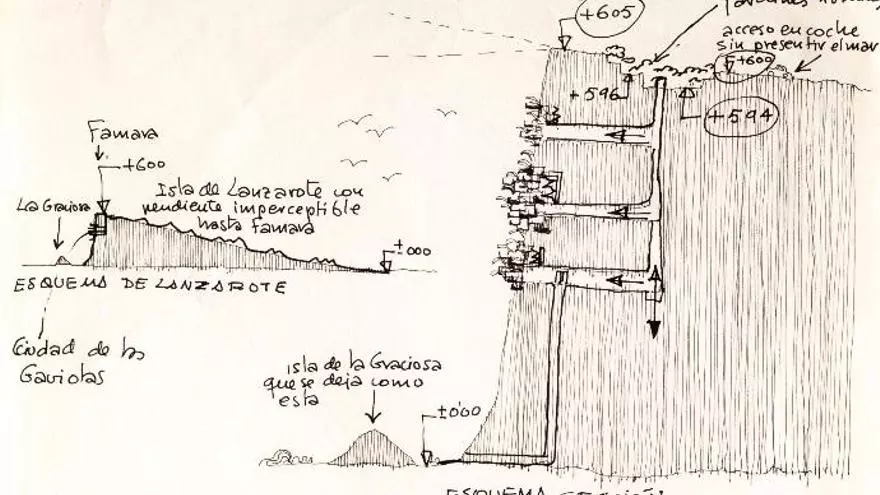 +605
acceso en coche
sin presentir el mar
+600
+596
+594
Famara
+600
La Graciosa
Isla de Lanzarote con
pendiente imperceptible
hasta Famara
±000
ESQUEMA DE LANZAROTE
Ciudad de las
Gaviotas
isla de la Graciosa
que se deja como
esta
±0'00
ESQUEMA